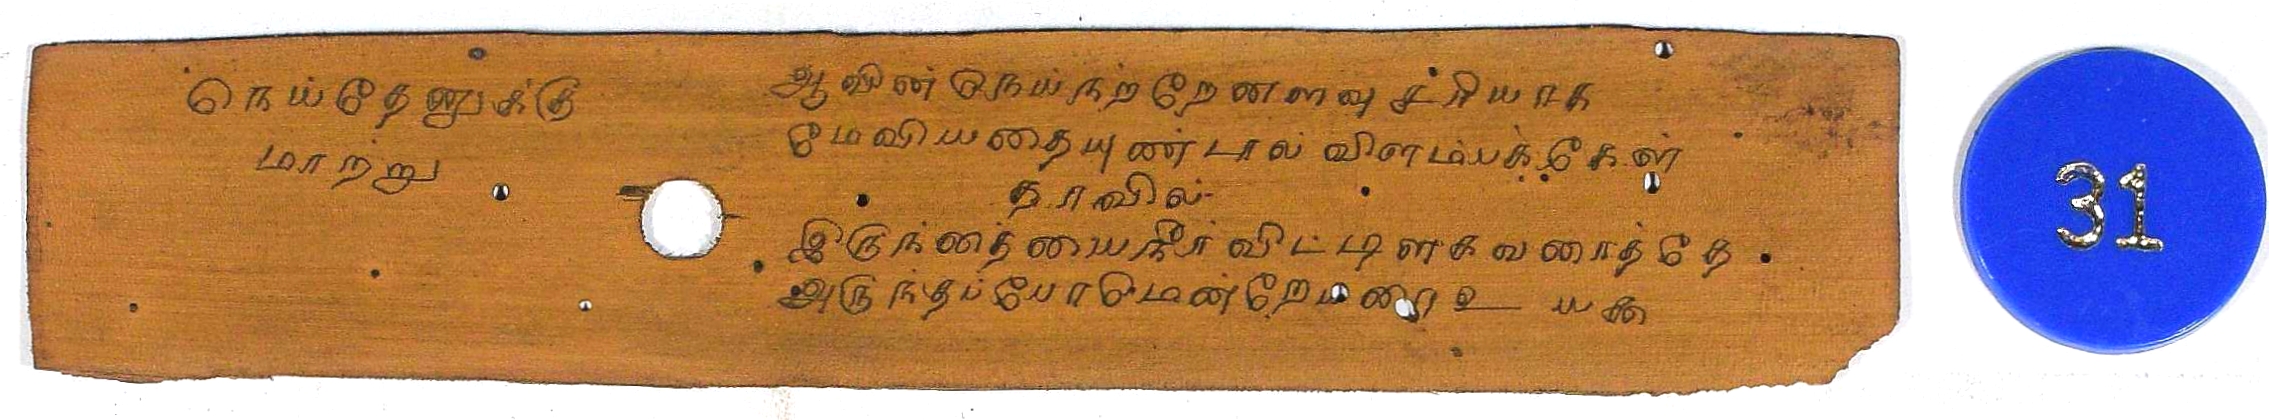 நெய்தேனுக்கு
மாற்று
ஆவின் நெய்நற்றேனளவு சரியாக
மேவியதையுண்டால் விளம்பக்கேள்
தாவில்
இருந்ததையைநீர்விட்டிளகவணைத்தே
அருந்தப்போமென்றே
31